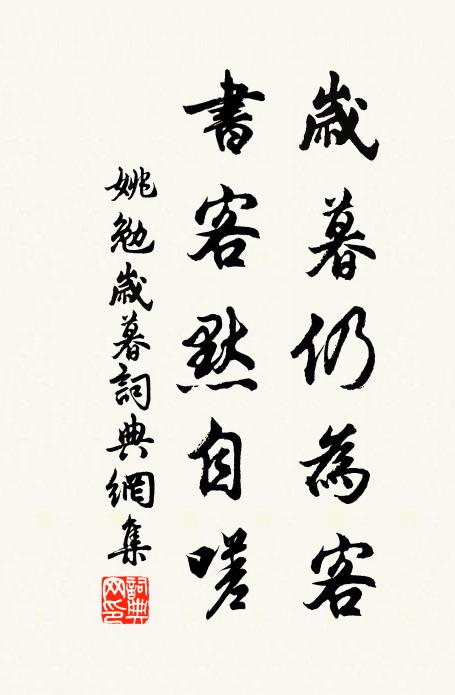 歲暮仍為客
書客默自嗟
姚勉歲暮詞典網集
詞典网印